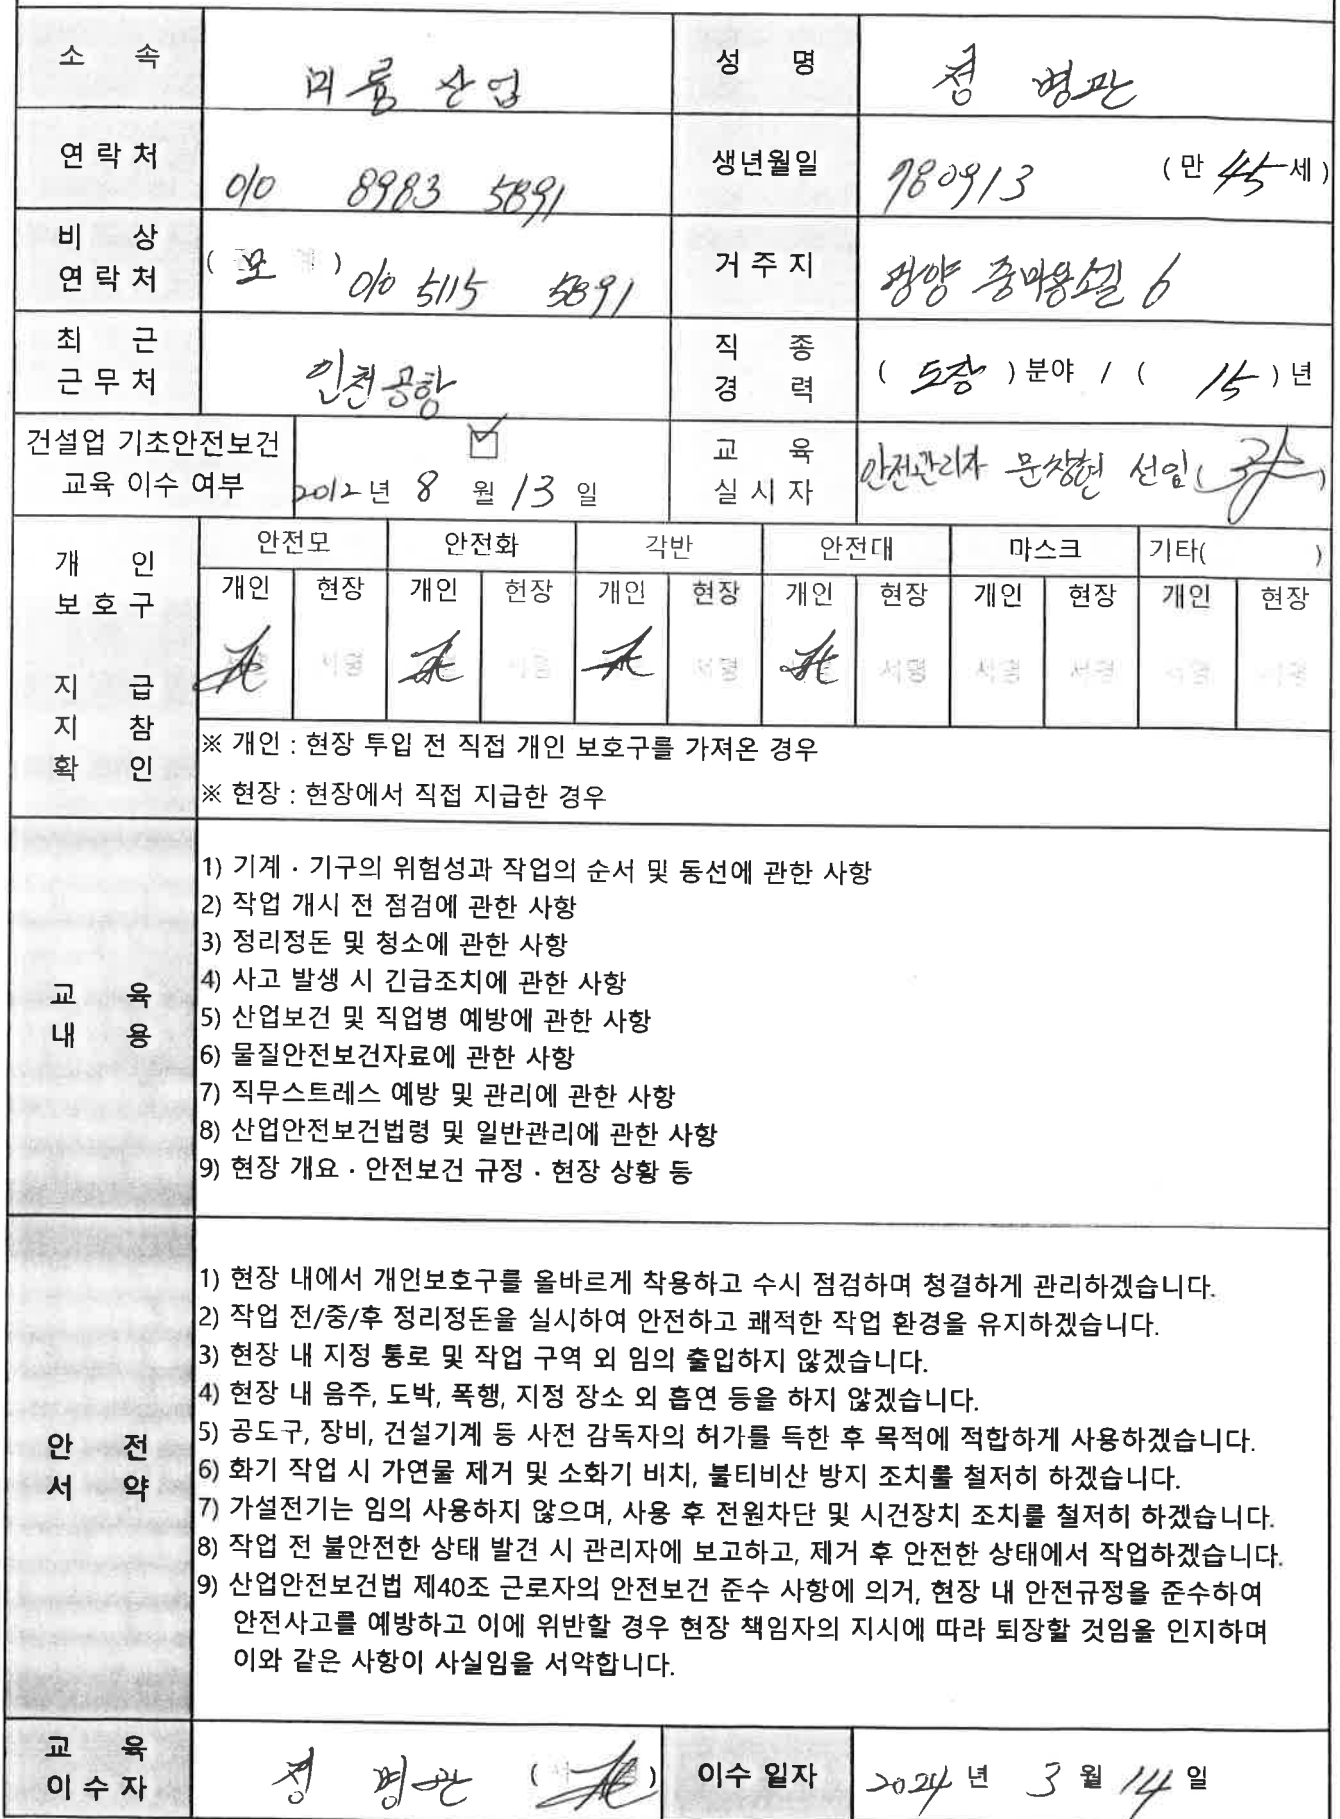 소 속 미륭 산업 성 명 정 병관
연 락 처 010 8983 5891 생년월일 780913 ( 만 45 세 )
비 상
연 락 처 ( 모 ) 010 5115 5891 거 주 지 광양 중마용소길 6
최 근
근 무 처 인천공항 직 종
경 력 ( 도장 ) 분야 / ( 15 ) 년
건설업 기초안전보건
교육 이수 여부 2012 년 8 월 13 일 교 육
실 시 자 안전관리자 문창현 선임 ( )
개 인
보 호 구
지 급
지 참
확 인
안전모 안전화 각반 안전대 마스크 기타( )
개인 현장 개인 현장 개인 현장 개인 현장 개인 현장 개인 현장
서명 서명 서명 서명 서명 서명 서명 서명
※ 개인 : 현장 투입 전 직접 개인 보호구를 가져온 경우
※ 현장 : 현장에서 직접 지급한 경우
교 육
내 용
1) 기계 · 기구의 위험성과 작업의 순서 및 동선에 관한 사항
2) 작업 개시 전 점검에 관한 사항
3) 정리정돈 및 청소에 관한 사항
4) 사고 발생 시 긴급조치에 관한 사항
5) 산업보건 및 직업병 예방에 관한 사항
6) 물질안전보건자료에 관한 사항
7) 직무스트레스 예방 및 관리에 관한 사항
8) 산업안전보건법령 및 일반관리에 관한 사항
9) 현장 개요 · 안전보건 규정 · 현장 상황 등
안 전
서 약
1) 현장 내에서 개인보호구를 올바르게 착용하고 수시 점검하며 청결하게 관리하겠습니다.
2) 작업 전/중/후 정리정돈을 실시하여 안전하고 쾌적한 작업 환경을 유지하겠습니다.
3) 현장 내 지정 통로 및 작업 구역 외 임의 출입하지 않겠습니다.
4) 현장 내 음주, 도박, 폭행, 지정 장소 외 흡연 등을 하지 않겠습니다.
5) 공도구, 장비, 건설기계 등 사전 감독자의 허가를 득한 후 목적에 적합하게 사용하겠습니다.
6) 화기 작업 시 가연물 제거 및 소화기 비치, 불티비산 방지 조치를 철저히 하겠습니다.
7) 가설전기는 임의 사용하지 않으며, 사용 후 전원차단 및 시건장치 조치를 철저히 하겠습니다.
8) 작업 전 불안전한 상태 발견 시 관리자에 보고하고, 제거 후 안전한 상태에서 작업하겠습니다.
9) 산업안전보건법 제40조 근로자의 안전보건 준수 사항에 의거, 현장 내 안전규정을 준수하여
안전사고를 예방하고 이에 위반할 경우 현장 책임자의 지시에 따라 퇴장할 것임을 인지하며
이와 같은 사항이 사실임을 서약합니다.
교 육
이 수 자 정 병관 ( ) 이수 일자 2024 년 3 월 14 일